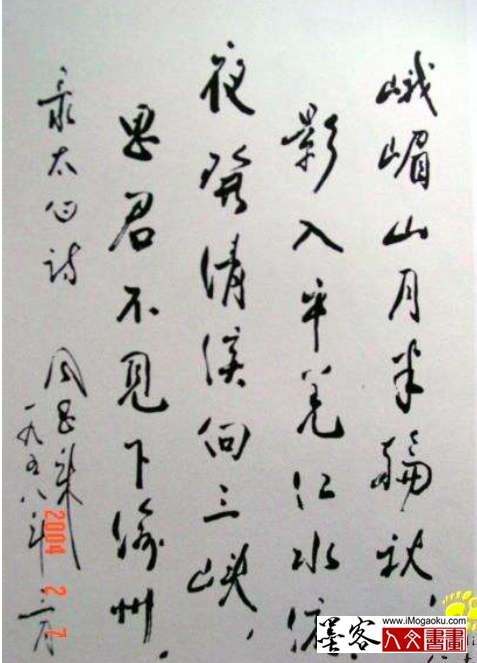 峨嵋山月半輪秋，
影入平羌江水流，
夜發清溪向三峡，
思君不见下渝州．
录太白诗
一九五八年三月
2004 2 7
墨客
www.iMogaoku.com
人文書畫